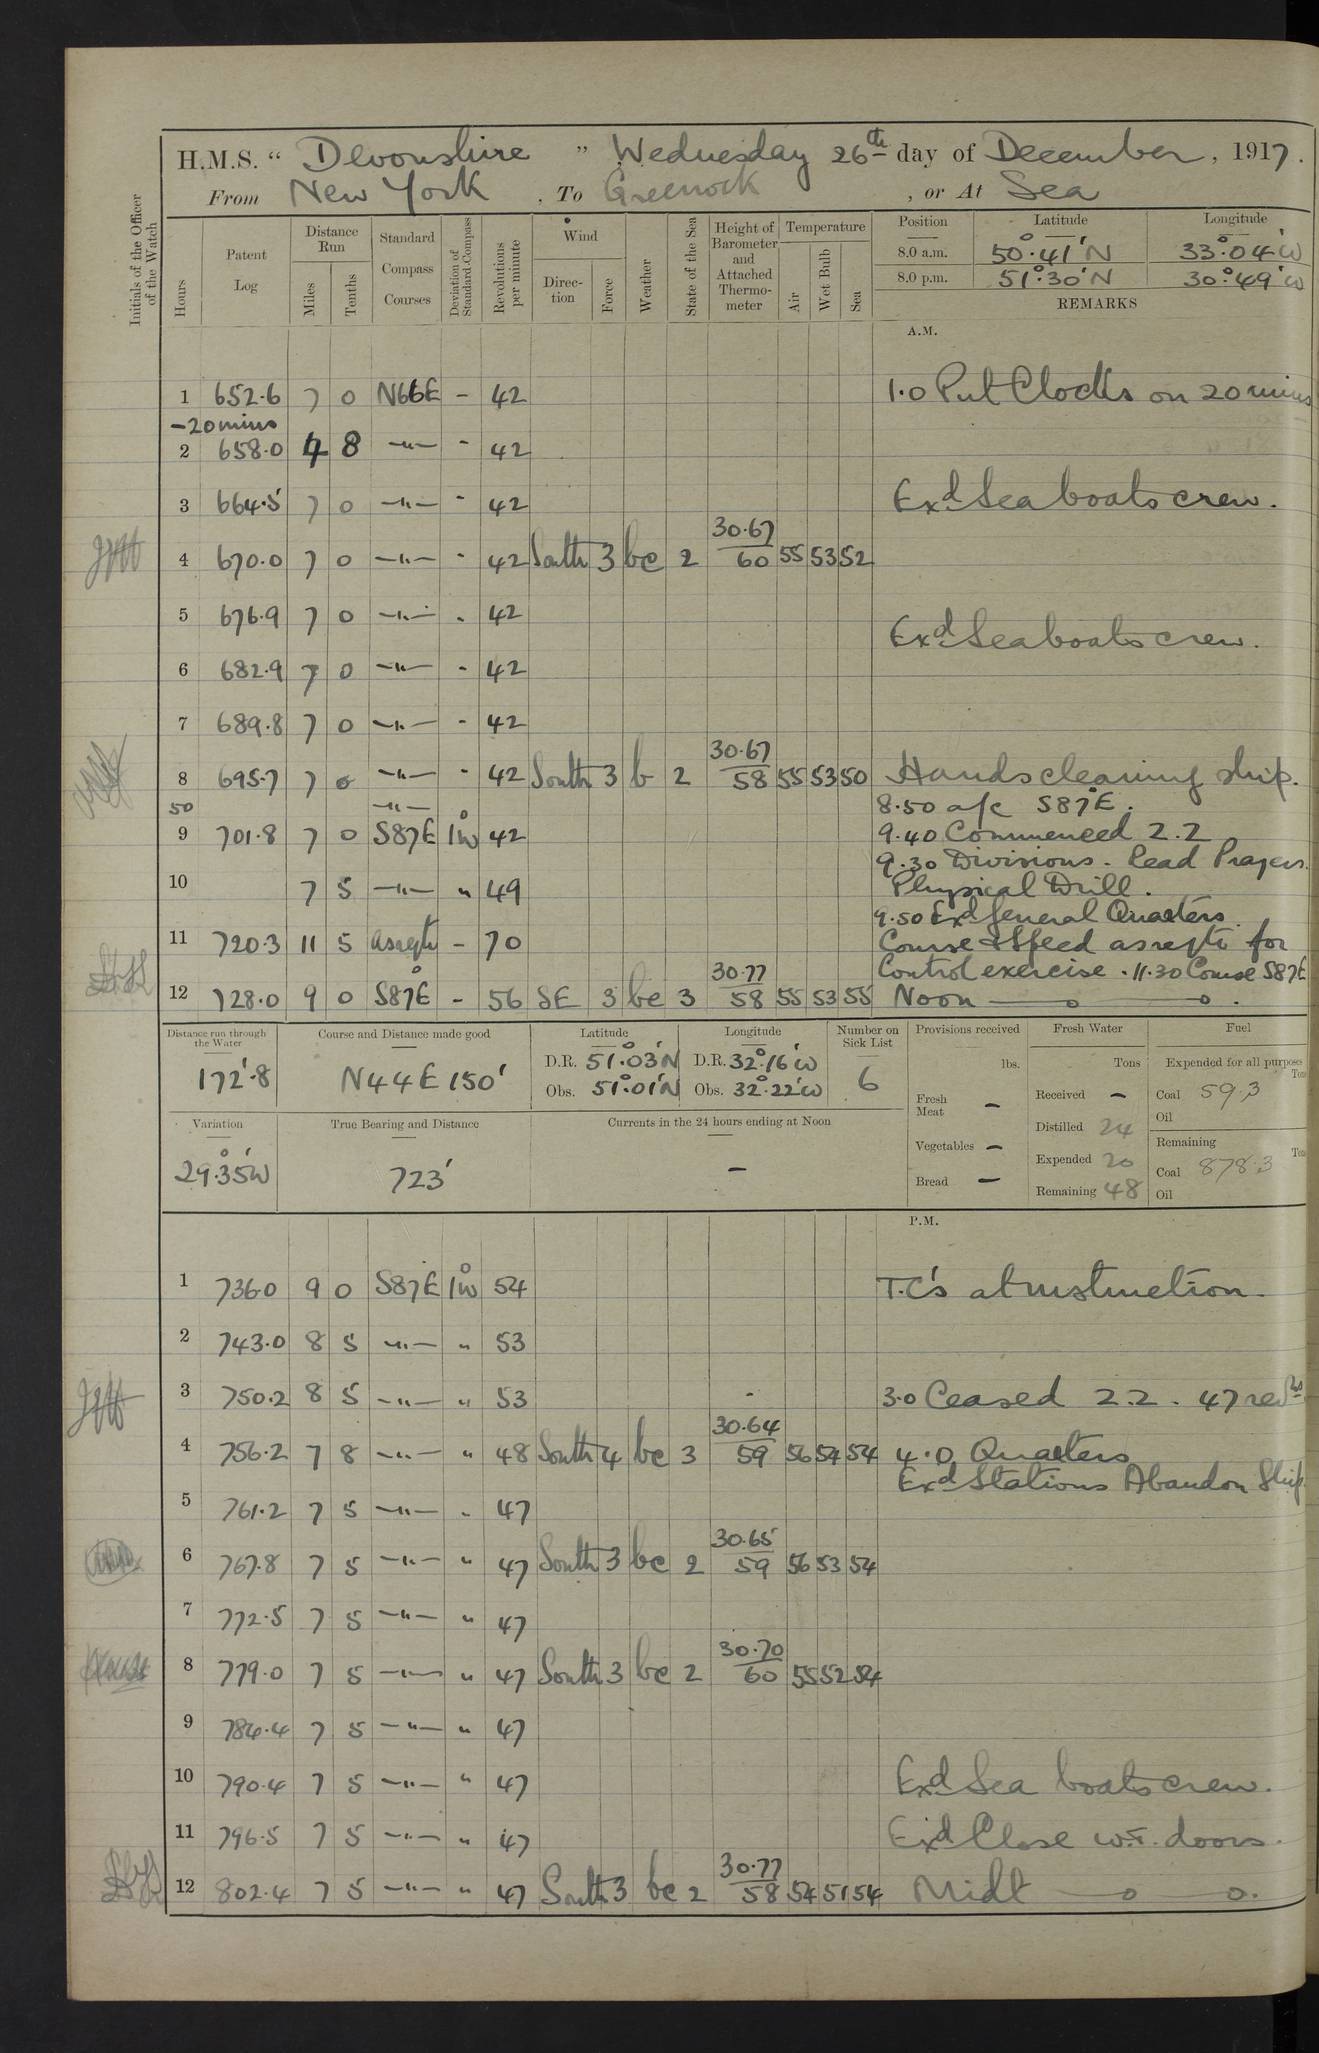 H.M.S. “ Devonshire ” Wednesday 26th day of December, 1917.
From New York, To Greenock, or At Sea
Initials of the Officer of the Watch
Hours
Patent Log
Distance Run
Miles
Tenths
Standard Compass Courses
Deviation of Standard Compass
Revolutions per minute
Wind
Direction
Force
Weather
State of the Sea
Height of Barometer and Attached Thermometer
Temperature
Air
Wet Bulb
Sea
Position Latitude Longitude
8.0 a.m. 50°.41'N 33°.04'W
8.0 p.m. 51°.30'N 30°.49'W
REMARKS
A.M.
1 652.6 7 0 N66E - 42 1.0 Put Clocks on 20 mins
-20 mins
2 658.0 4 8 -"- - 42
3 664.5 7 0 -"- - 42 Exd Sea boats crew.
30.67
4 670.0 7 0 -"- - 42 South 3 bc 2 60 55 53 52
5 676.9 7 0 -"- - 42
Exd Seaboats crew.
6 682.9 7 0 -"- - 42
7 689.8 7 0 -"- - 42
30.67
8 695.7 7 0 -"- - 42 South 3 b 2 58 55 53 50 Hands cleaning ship.
50 -"- 8.50 a/c S87°E.
9 701.8 7 0 S87E 1°W 42 9.40 Commenced 2.2
9.30 Divisions. Read Prayers.
10 7 5 -"- " 49 Physical Drill.
9.50 Exd General Quarters.
11 720.3 11 5 as reqte - 70 Course & Speed as reqte for
30.77 Control exercise. 11.30 Course S87E
12 728.0 9 0 S87°E - 56 SE 3 bc 3 58 55 53 55 Noon
Distance run through the Water
172'.8
Course and Distance made good
N44E 150'
Latitude
D.R. 51°.03'N
Obs. 51°.01'N
Longitude
D.R. 32°.16'W
Obs. 32°.22'W
Number on Sick List
6
Provisions received
lbs.
Fresh Meat -
Vegetables -
Bread -
Fresh Water
Tons
Received -
Distilled 24
Expended 20
Remaining 48
Fuel
Expended for all purposes
Coal 59.3
Oil
Remaining
Coal 878.3
Oil
Variation
29°.35'W
True Bearing and Distance
723'
Currents in the 24 hours ending at Noon
-
P.M.
1 736.0 9 0 S87E 1°W 54 T.C's at instruction.
2 743.0 8 5 -"- " 53
3 750.2 8 5 -"- " 53 3.0 Ceased 2.2. 47 revns
30.64
4 756.2 7 8 -"- " 48 South 4 bc 3 59 56 54 54 4.0 Quarters
Exd Stations Abandon Ship
5 761.2 7 5 -"- " 47
30.65
6 767.8 7 5 -"- " 47 South 3 bc 2 59 56 53 54
7 772.5 7 5 -"- " 47
30.70
8 779.0 7 5 -"- " 47 South 3 bc 2 60 55 52 54
9 784.4 7 5 -"- " 47
10 790.4 7 5 -"- " 47 Exd Sea boats crew.
11 796.5 7 5 -"- " 47 Exd Close w.t. doors.
30.77
12 802.4 7 5 -"- " 47 South 3 bc 2 58 54 51 54 Midt